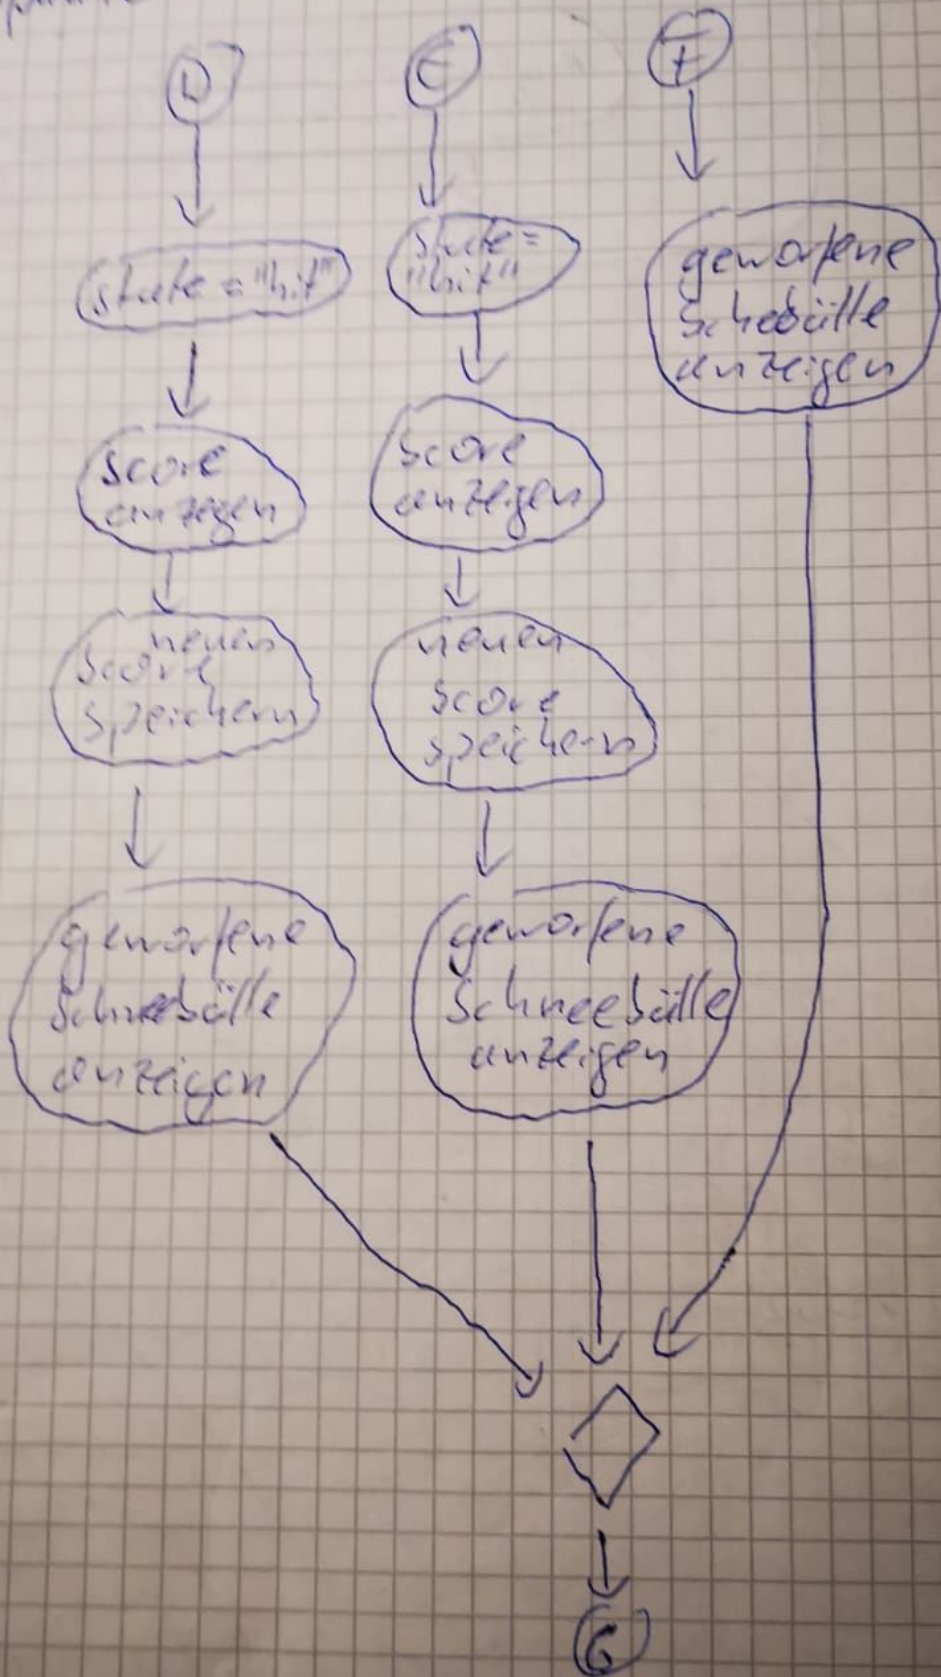 D
state = "hit"
Score
anzegen
neuen
Score
speichern
geworfene
Schneebälle
anzeigen
E
state =
"hit"
Score
anzeigen
neuen
Score
speichern
geworfene
Schneebälle
anzeigen
F
geworfene
Schebälle
anzeigen
G